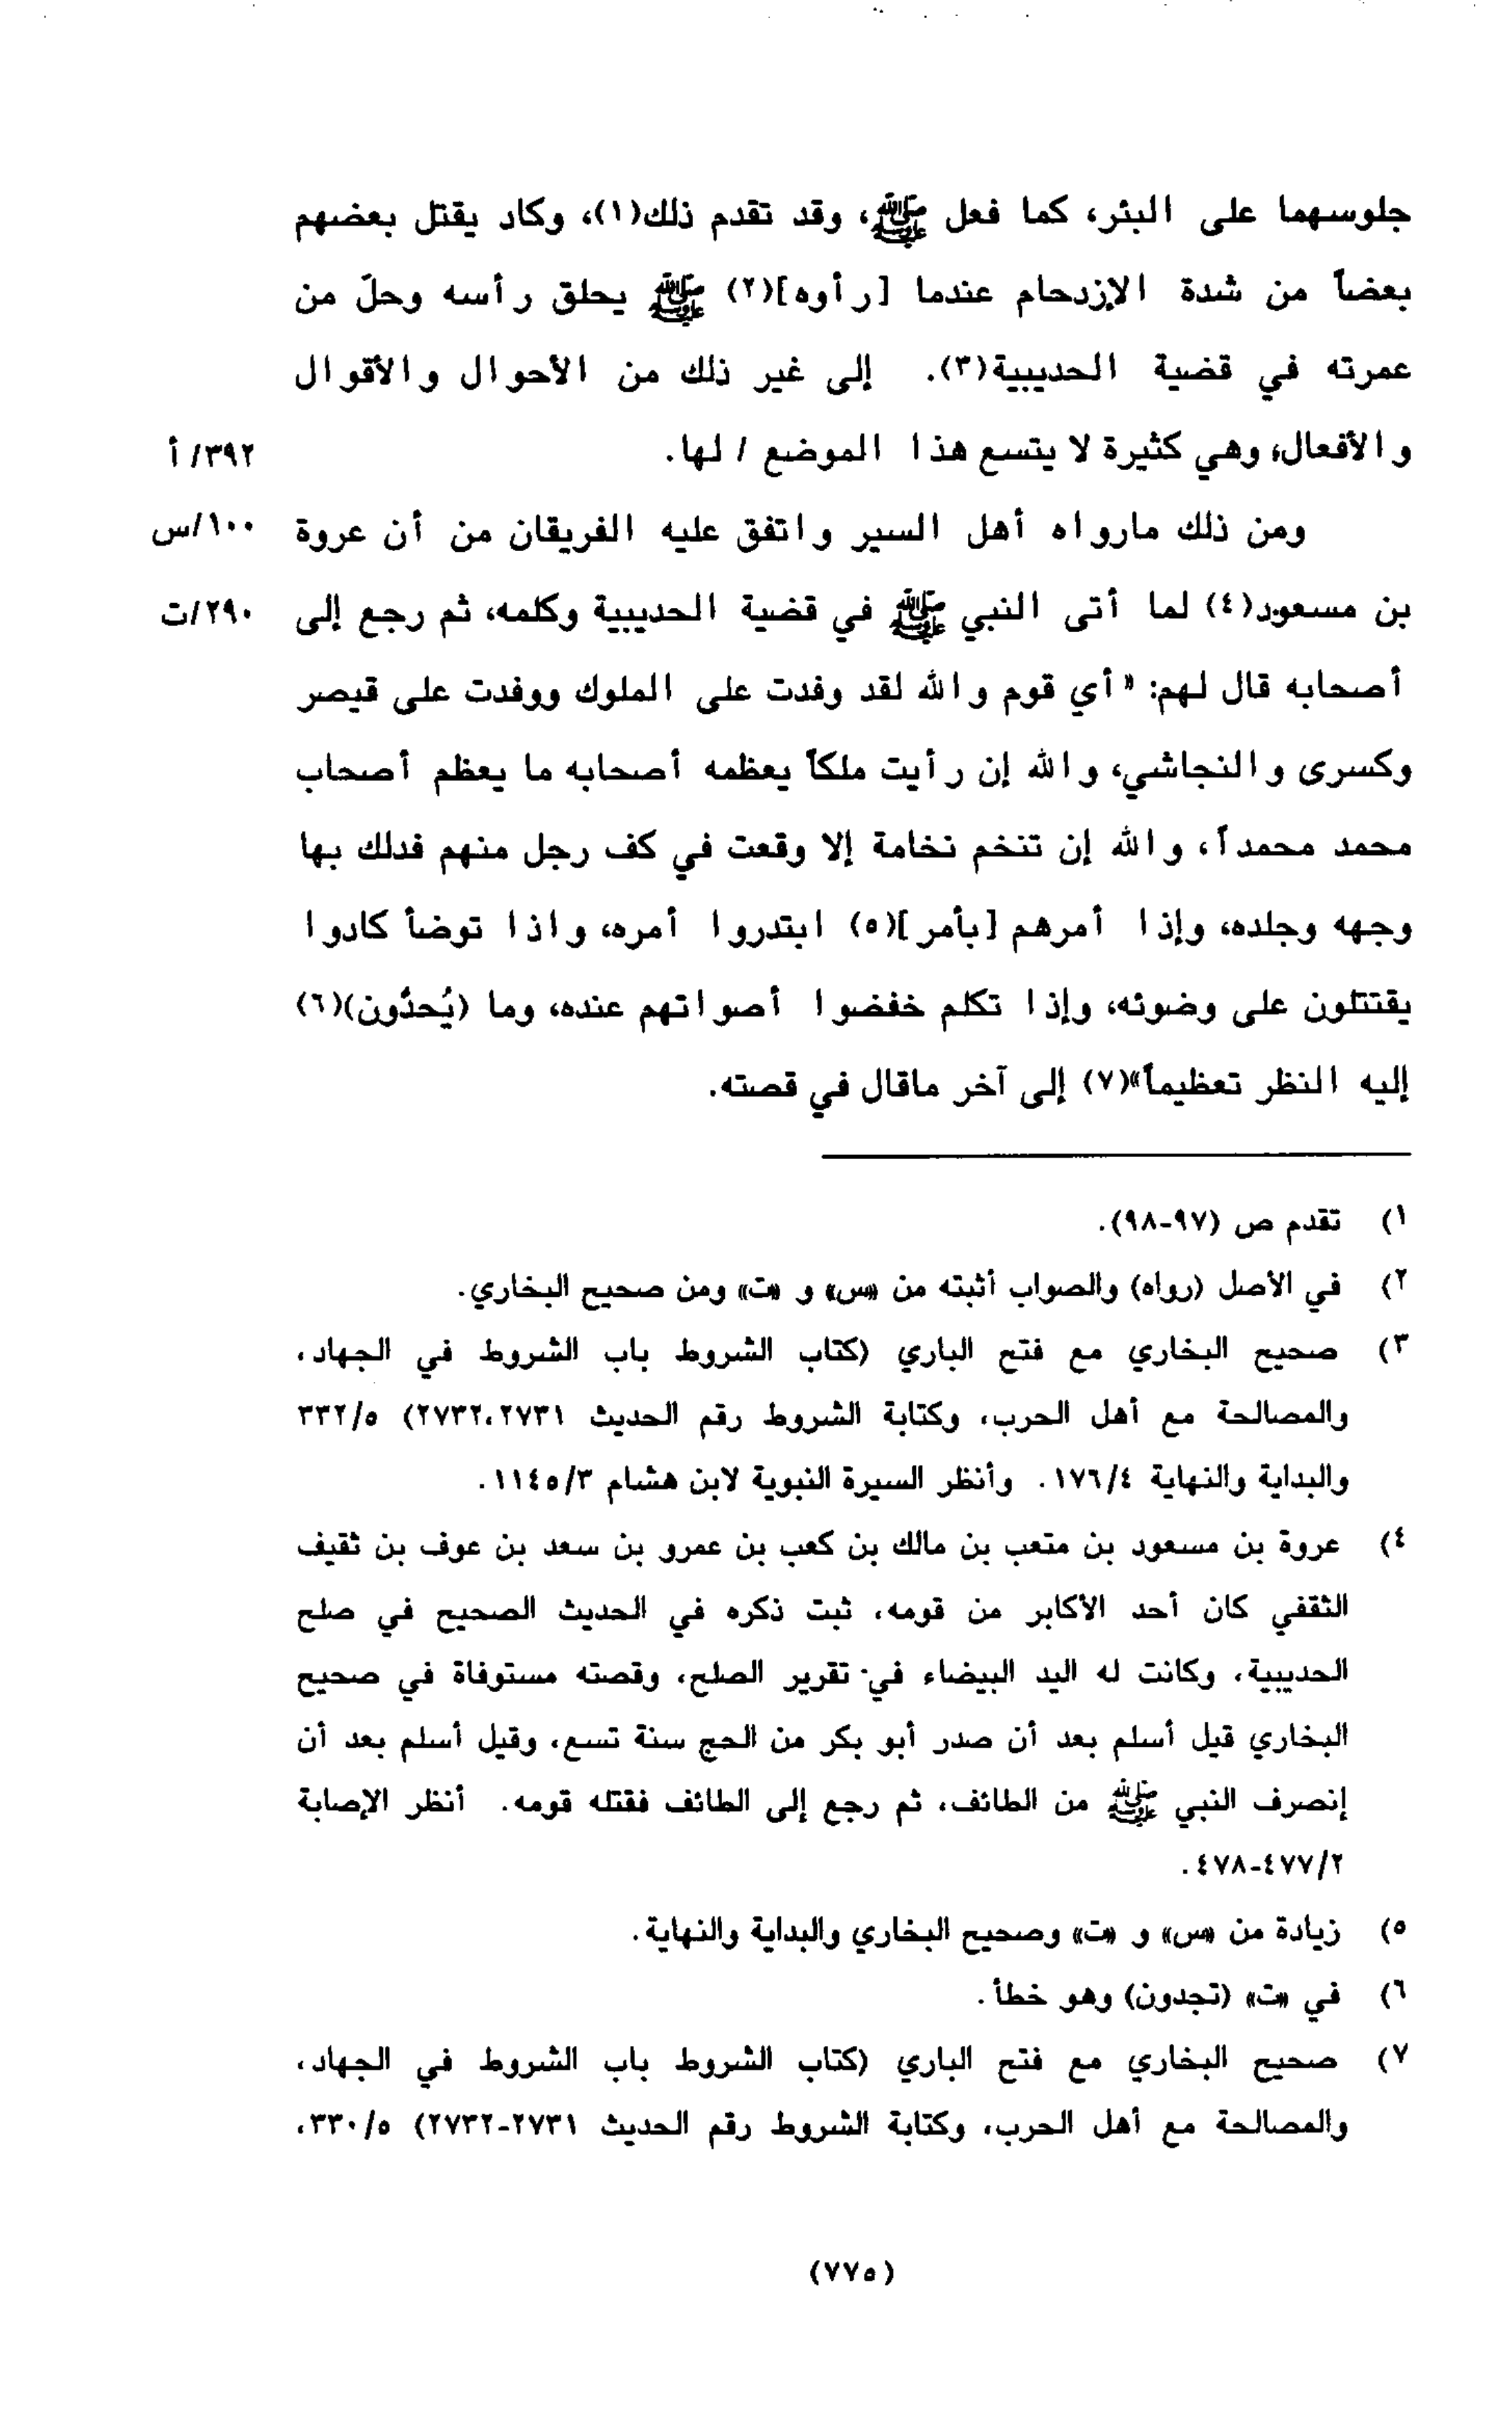 جلوسهما على البئر، كما فعل ﷺ، وقد تقدم ذلك(١)، وكاد يقتل بعضهم
بعضاً من شدة الإزدحام عندما [رأوه](٢) ﷺ يحلق رأسه وحلّ من
عمرته في قضية الحديبية(٣). إلى غير ذلك من الأحوال والأقوال
والأفعال، وهي كثيرة لا يتسع هذا الموضع / لها.
٣٩٢/ أ
ومن ذلك مارواه أهل السير واتفق عليه الفريقان من أن عروة
١٠٠/س
بن مسعود(٤) لما أتى النبي ﷺ في قضية الحديبية وكلمه، ثم رجع إلى
٢٩٠/ت
أصحابه قال لهم: «أي قوم والله لقد وفدت على الملوك ووفدت على قيصر
وكسرى والنجاشي، والله إن رأيت ملكاً يعظمه أصحابه ما يعظم أصحاب
محمد محمداً، والله إن تنخم نخامة إلا وقعت في كف رجل منهم فدلك بها
وجهه وجلده، وإذا أمرهم [بأمر](٥) ابتدروا أمره، واذا توضأ كادوا
يقتتلون على وضوئه، وإذا تكلم خفضوا أصواتهم عنده، وما (يُحدُون)(٦)
إليه النظر تعظيماً»(٧) إلى آخر ماقال في قصته.
١) تقدم ص (٩٧-٩٨).
٢) في الأصل (رواه) والصواب أثبته من «س» و «ت» ومن صحيح البخاري.
٣) صحيح البخاري مع فتح الباري (كتاب الشروط باب الشروط في الجهاد،
والمصالحة مع أهل الحرب، وكتابة الشروط رقم الحديث ٢٧٣١،٢٧٣٢) ٣٣٢/٥
والبداية والنهاية ١٧٦/٤. وأنظر السيرة النبوية لابن هشام ١١٤٥/٣.
٤) عروة بن مسعود بن متعب بن مالك بن كعب بن عمرو بن سعد بن عوف بن ثقيف
الثقفي كان أحد الأكابر من قومه، ثبت ذكره في الحديث الصحيح في صلح
الحديبية، وكانت له اليد البيضاء في تقرير الصلح، وقصته مستوفاة في صحيح
البخاري قيل أسلم بعد أن صدر أبو بكر من الحج سنة تسع، وقيل أسلم بعد أن
إنصرف النبي ﷺ من الطائف، ثم رجع إلى الطائف فقتله قومه. أنظر الإصابة
٤٧٧/٢-٤٧٨.
٥) زيادة من «س» و «ت» وصحيح البخاري والبداية والنهاية.
٦) في «ت» (تجدون) وهو خطأ.
٧) صحيح البخاري مع فتح الباري (كتاب الشروط باب الشروط في الجهاد،
والمصالحة مع أهل الحرب، وكتابة الشروط رقم الحديث ٢٧٣١-٢٧٣٢) ٣٣٠/٥،
(٧٧٥)